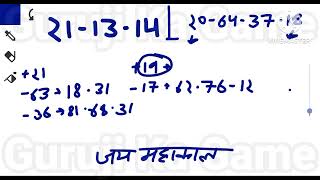 21-13-14 20-64-37-18
+21 +19+
-63→18.31 -17→62.76-12
-36→81.68.31
जय महाकाल
Guruji Ka Game